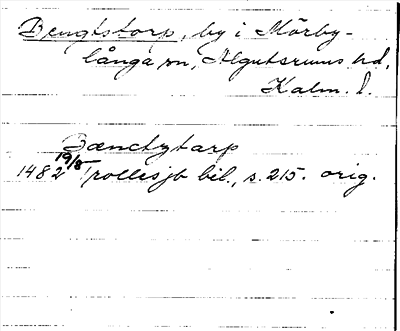 Bengtstorp, by i Mörby-
långa sn, Algutsrums hd,
Kalm. l.
Bænctztarp
1482 19/8 s. 215. orig.